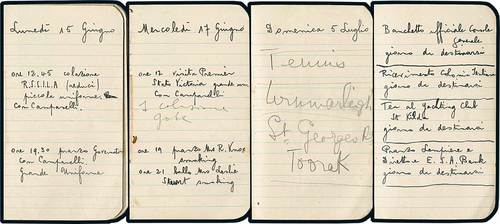 Lunedì 15 Giugno
ore 12.45 colazione
R.S.S.I.L.A (reduci)
piccola uniforme
con Camparelli.
ore 19.30 pranzo Governatore
con Camparelli
Grande Uniforme
Mercoledì 17 Giugno
ore 12 visita Premier
Stato Victoria grande un.
con Camparelli
colazione
ore 19 pranzo Mr R. Knox
smoking
ore 21 ballo Mrs Leslie
Stuart smoking
Domenica 5 Luglio
Tennis
St. Georges Rd
Toorak
Banchetto ufficiale Console
Generale
giorno da destinarsi
Ricevimento Colonia Italiana
giorno da destinarsi
Tea al Yachting Club
St Kilda
giorno da destinarsi
Pranzo
Direttore E. S. A. Bank
giorno da destinarsi